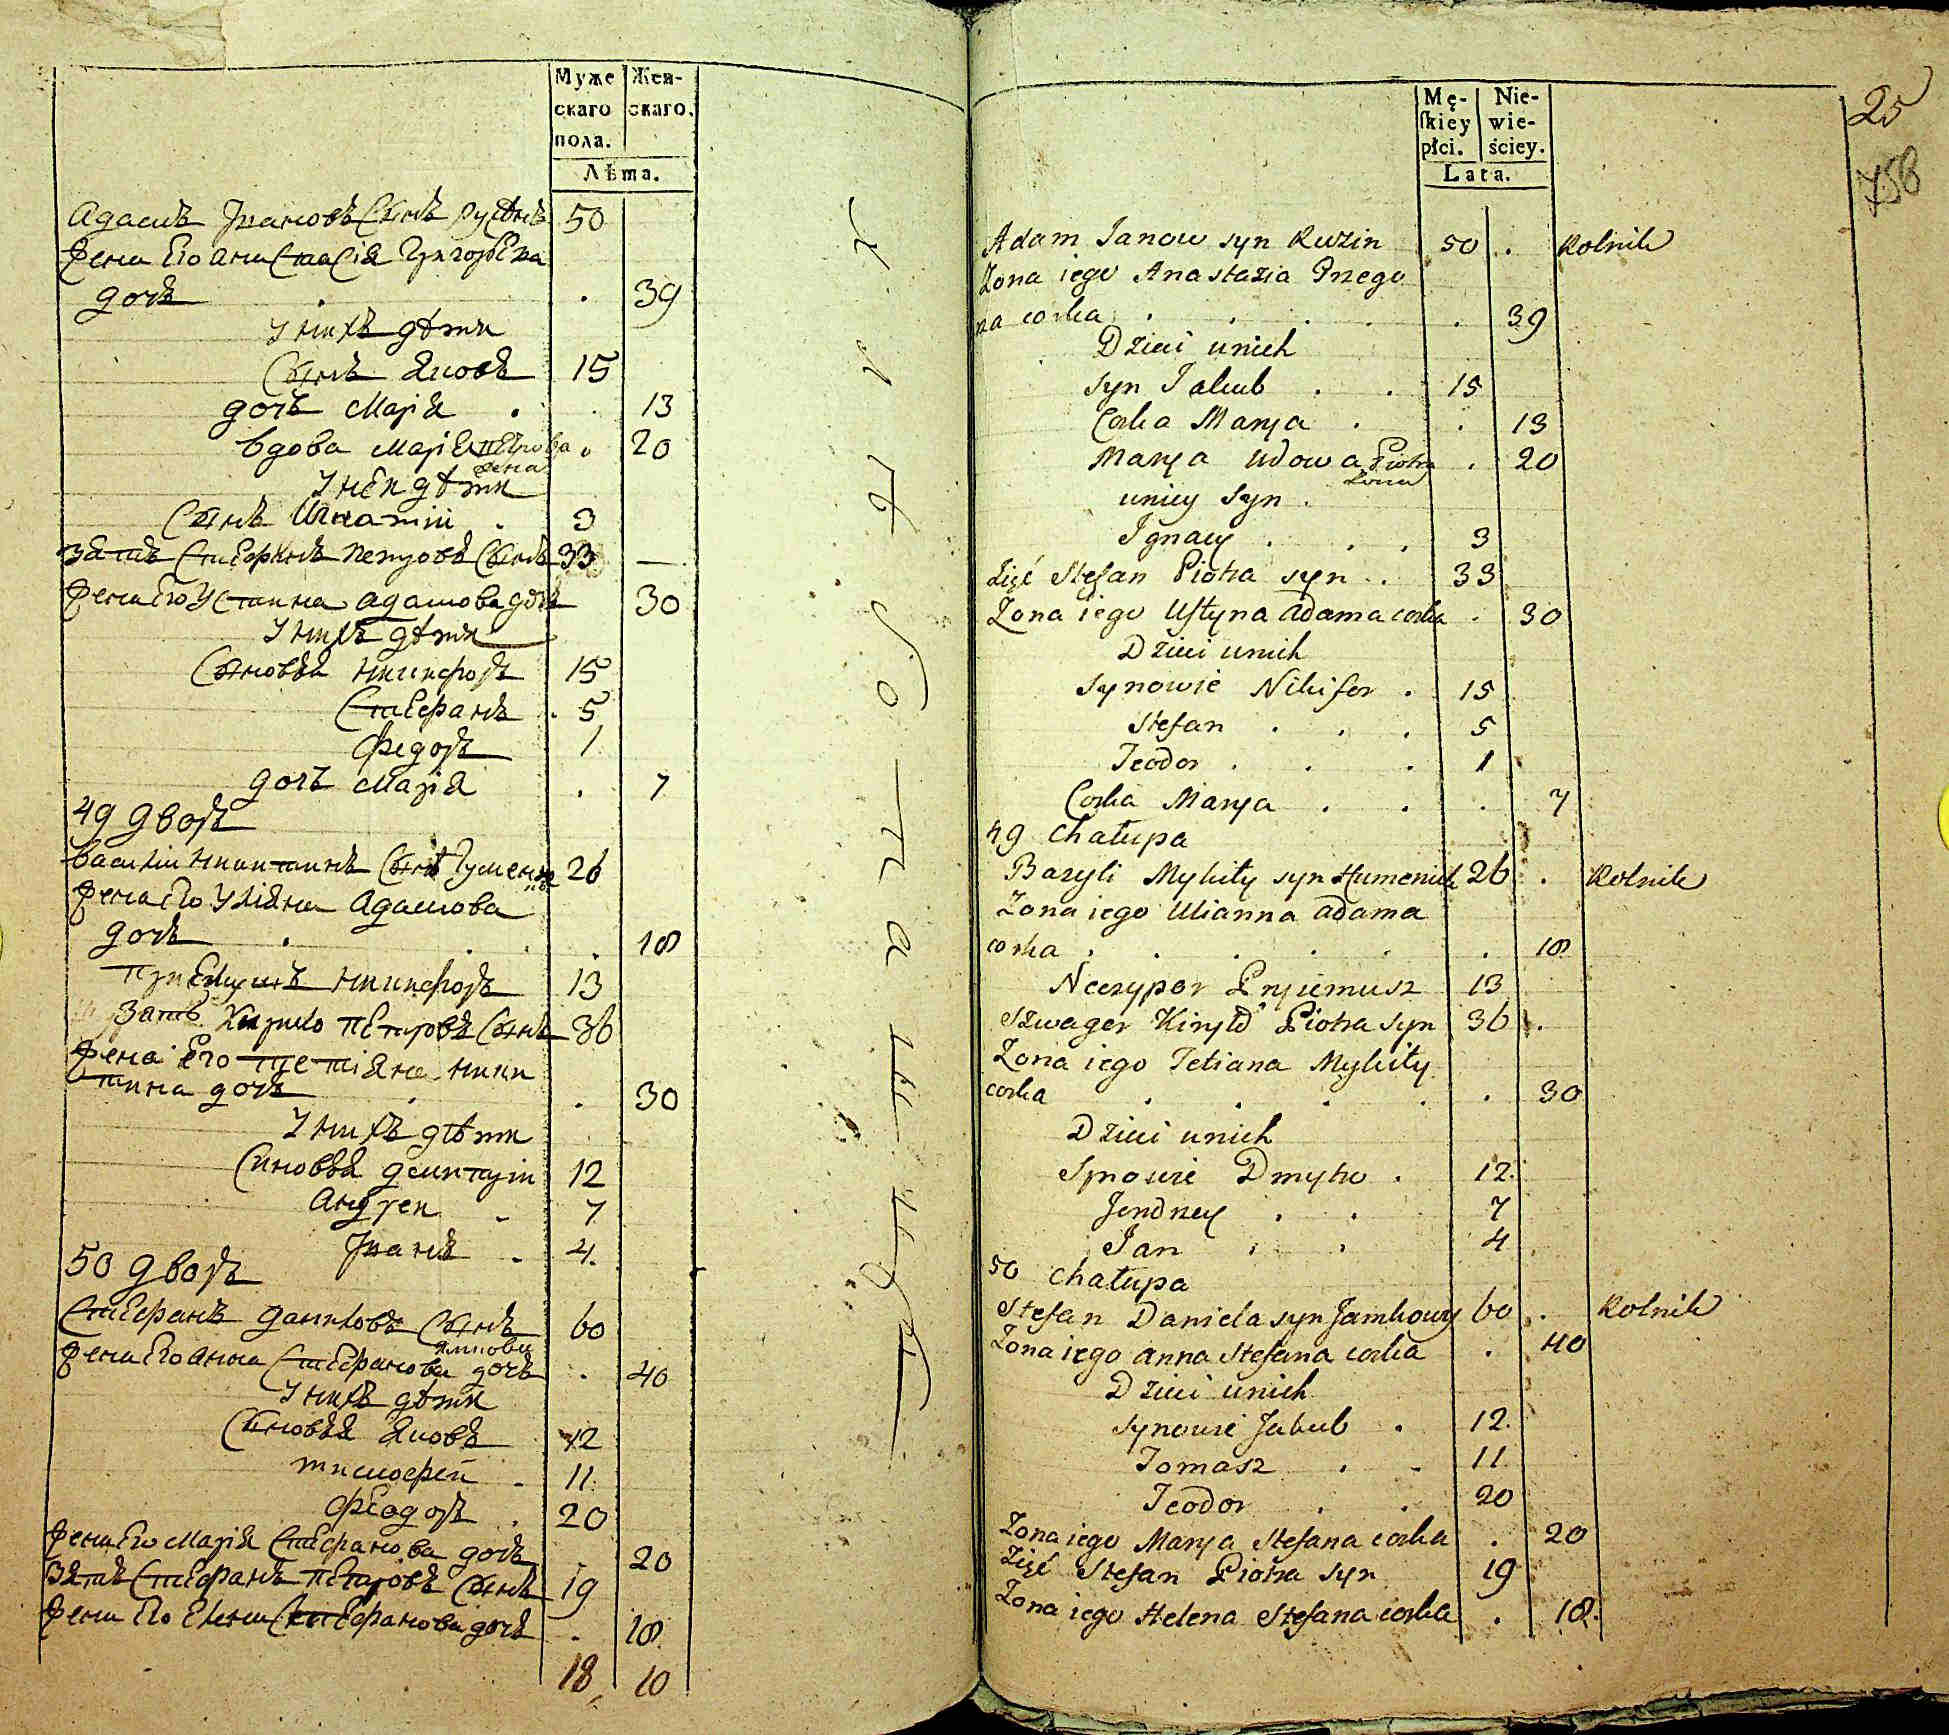 Муже
скаго
пола.
Жен-
скаго.
Лѣта.
Адамъ Ивановъ Сынъ 50
жена Его анаСтаСія Григорьева
дочь 39
У нихъ дѣти
Сынъ Яковъ 15
дочь Марія 13
вдова Марія петрова 20
жена
У неи дѣти
Сынъ Игнатіи 3
Зять Стефанъ петровъ Сынъ 33 —
жена Его Устина адамова дочь 30
У нихъ дѣти
Сыновья никифоръ 15
Стефанъ 5
Федоръ 1
дочь Марія 7
49 дворъ
василіи никитинъ Сынъ Гуменюкъ 26
жена Его Уліяна Адамова
дочь 18
приемышъ никифоръ 13
Зать Кирило петровъ Сынъ 36
жена Его тетіяна ники
тина дочь 30
У нихъ дѣти
Сыновья дмитріи 12
Андреи 7
Иванъ 4.
50 дворъ
Стефанъ даниловъ Сынъ 60
жена Его анна Стефанова дочь 40
У нихъ дѣти
Сыновья Яковъ 12
тимофей 11
Феодоръ 20
жена Его Марія Стефанова дочь 20
Зять Стефанъ петровъ Сынъ 19
жена Его Елена Стефанова дочь 18
18 10
Mę-
skiey
płci.
Nie-
wie-
ściey.
Lata.
25
758
Adam Janow syn Kuzin 50 . Rolnik
Zona iego Anastazia Grzego
na corka 39
Dzieci unich
syn Jakub 15
Corka Marya 13
Marya Udowa Piotra 20
zona
uniey Syn
Ignacy 3
Zięć Stefan Piotra syn 33
Zona iego Ustyna adama corka 30
Dzieci unich
Synowie Nikifor 15
Stefan 5
Teodor 1
Corka Marya 7
49 chałupa
Bazyli Mykity syn Humeniuk 26 . Rolnik
Zona iego Ulianna adama
corka 18
Neczypor Pryiemusz 13
Szwager Kiryło Piotra syn 36 .
Zona iego Tetiana Mykity
corka 30
Dzieci unich
Synowie Dmytro 12.
Jendrzey 7
Jan 4
50 chałupa
Stefan Daniela syn Jamkowy 60 . Rolnik
Zona iego anna Stefana corka 40
Dzieci unich
synowie Jakub 12.
Tomasz 11
Teodor 20
Zona iego Marya Stefana corka 20
Zięć Stefan Piotra syn 19
Zona iego Helena Stefana corka 18.